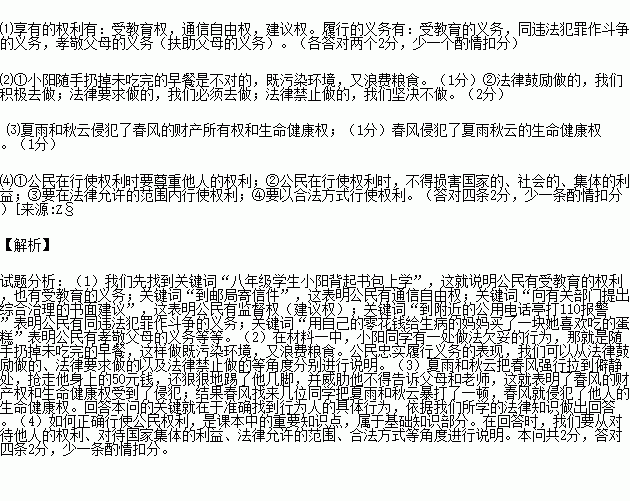 ⑴享有的权利有：受教育权，通信自由权，建议权。履行的义务有：受教育的义务，同违法犯罪作斗争
的义务，孝敬父母的义务（扶助父母的义务）。（各答对两个2分，少一个酌情扣分）
⑵①小阳随手扔掉未吃完的早餐是不对的，既污染环境，又浪费粮食。（1分）②法律鼓励做的，我们
积极去做；法律要求做的，我们必须去做；法律禁止做的，我们坚决不做。（2分）
⑶夏雨和秋云侵犯了春风的财产所有权和生命健康权；（1分）春风侵犯了夏雨秋云的生命健康权
。（1分）
⑷①公民在行使权利时要尊重他人的权利；②公民在行使权利时，不得损害国家的、社会的、集体的利
益；③要在法律允许的范围内行使权利；④要以合法方式行使权利。（答对四条2分，少一条酌情扣分
）[来源:Z§
【解析】
试题分析：（1）我们先找到关键词“八年级学生小阳背起书包上学”，这就说明公民有受教育的权利
，也有受教育的义务；关键词“到邮局寄信件”，这表明公民有通信自由权；关键词“向有关部门提出
综合治理的书面建议”，这表明公民有监督权（建议权）；关键词“到附近的公用电话亭打110报警
”表明公民有同违法犯罪作斗争的义务；关键词“用自己的零花钱给生病的妈妈买了一块她喜欢吃的蛋
糕”表明公民有孝敬父母的义务等等。（2）在材料一中，小阳同学有一处做法欠妥的行为，那就是随
手扔掉未吃完的早餐，这样做既污染环境，又浪费粮食。公民忠实履行义务的表现，我们可以从法律鼓
励做的、法律要求做的以及法律禁止做的等角度分别进行说明。（3）夏雨和秋云把春风强行拉到僻静
处，抢走他身上的50元钱，还狠狠地踢了他几脚，并威胁他不得告诉父母和老师，这就表明了春风的财
产权和生命健康权受到了侵犯；结果春风找来几位同学把夏雨和秋云暴打了一顿，春风就侵犯了他人的
生命健康权。回答本问的关键就在于准确找到行为人的具体行为，依据我们所学的法律知识做出回答
。（4）如何正确行使公民权利，是课本中的重要知识点，属于基础知识部分。在回答时，我们要从对
待他人的权利、对待国家集体的利益、法律允许的范围、合法方式等角度进行说明。本问共2分，答对
四条2分，少一条酌情扣分。